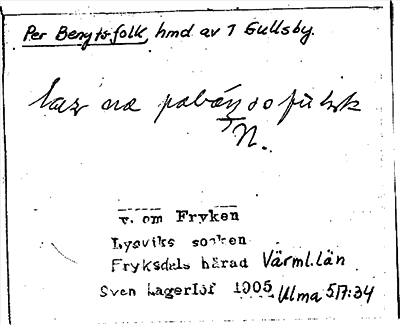 Per Bengtsfolk, hmd av 1 Gullsby.
N.
v. om Fryken
Lysviks socken
Fryksdals härad Värml. län
Sven Lagerlöf 1905 Ulma 517:34